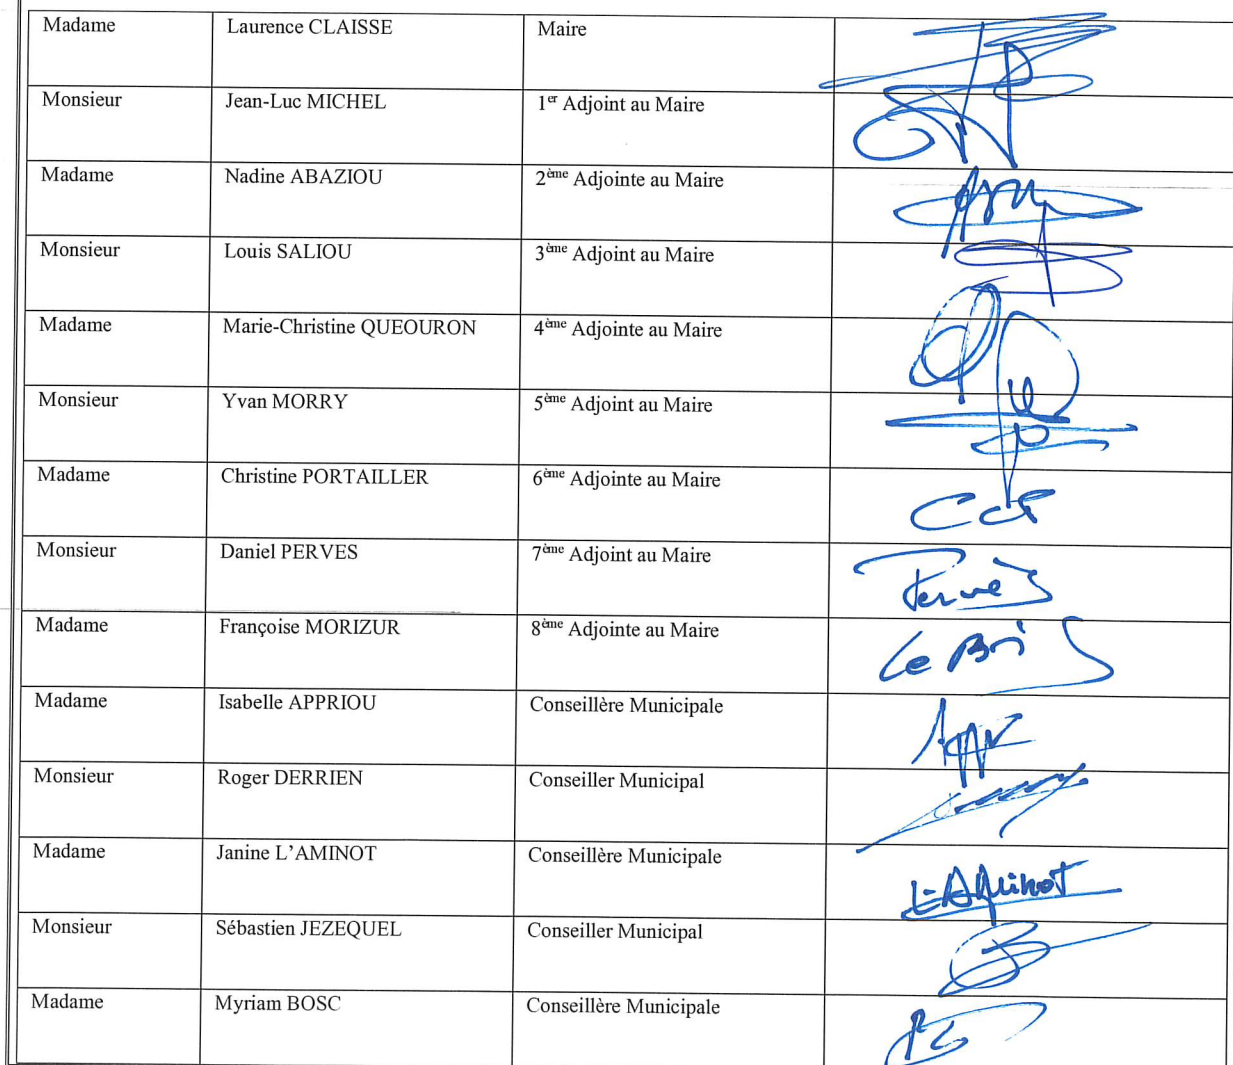 Madame Laurence CLAISSE Maire
Monsieur Jean-Luc MICHEL 1er Adjoint au Maire
Madame Nadine ABAZIOU 2ème Adjointe au Maire
Monsieur Louis SALIOU 3ème Adjoint au Maire
Madame Marie-Christine QUEOURON 4ème Adjointe au Maire
Monsieur Yvan MORRY 5ème Adjoint au Maire
Madame Christine PORTAILLER 6ème Adjointe au Maire
Monsieur Daniel PERVES 7ème Adjoint au Maire Pervès
Madame Françoise MORIZUR 8ème Adjointe au Maire
Madame Isabelle APPRIOU Conseillère Municipale
Monsieur Roger DERRIEN Conseiller Municipal
Madame Janine L'AMINOT Conseillère Municipale L'AMINOT
Monsieur Sébastien JEZEQUEL Conseiller Municipal
Madame Myriam BOSC Conseillère Municipale